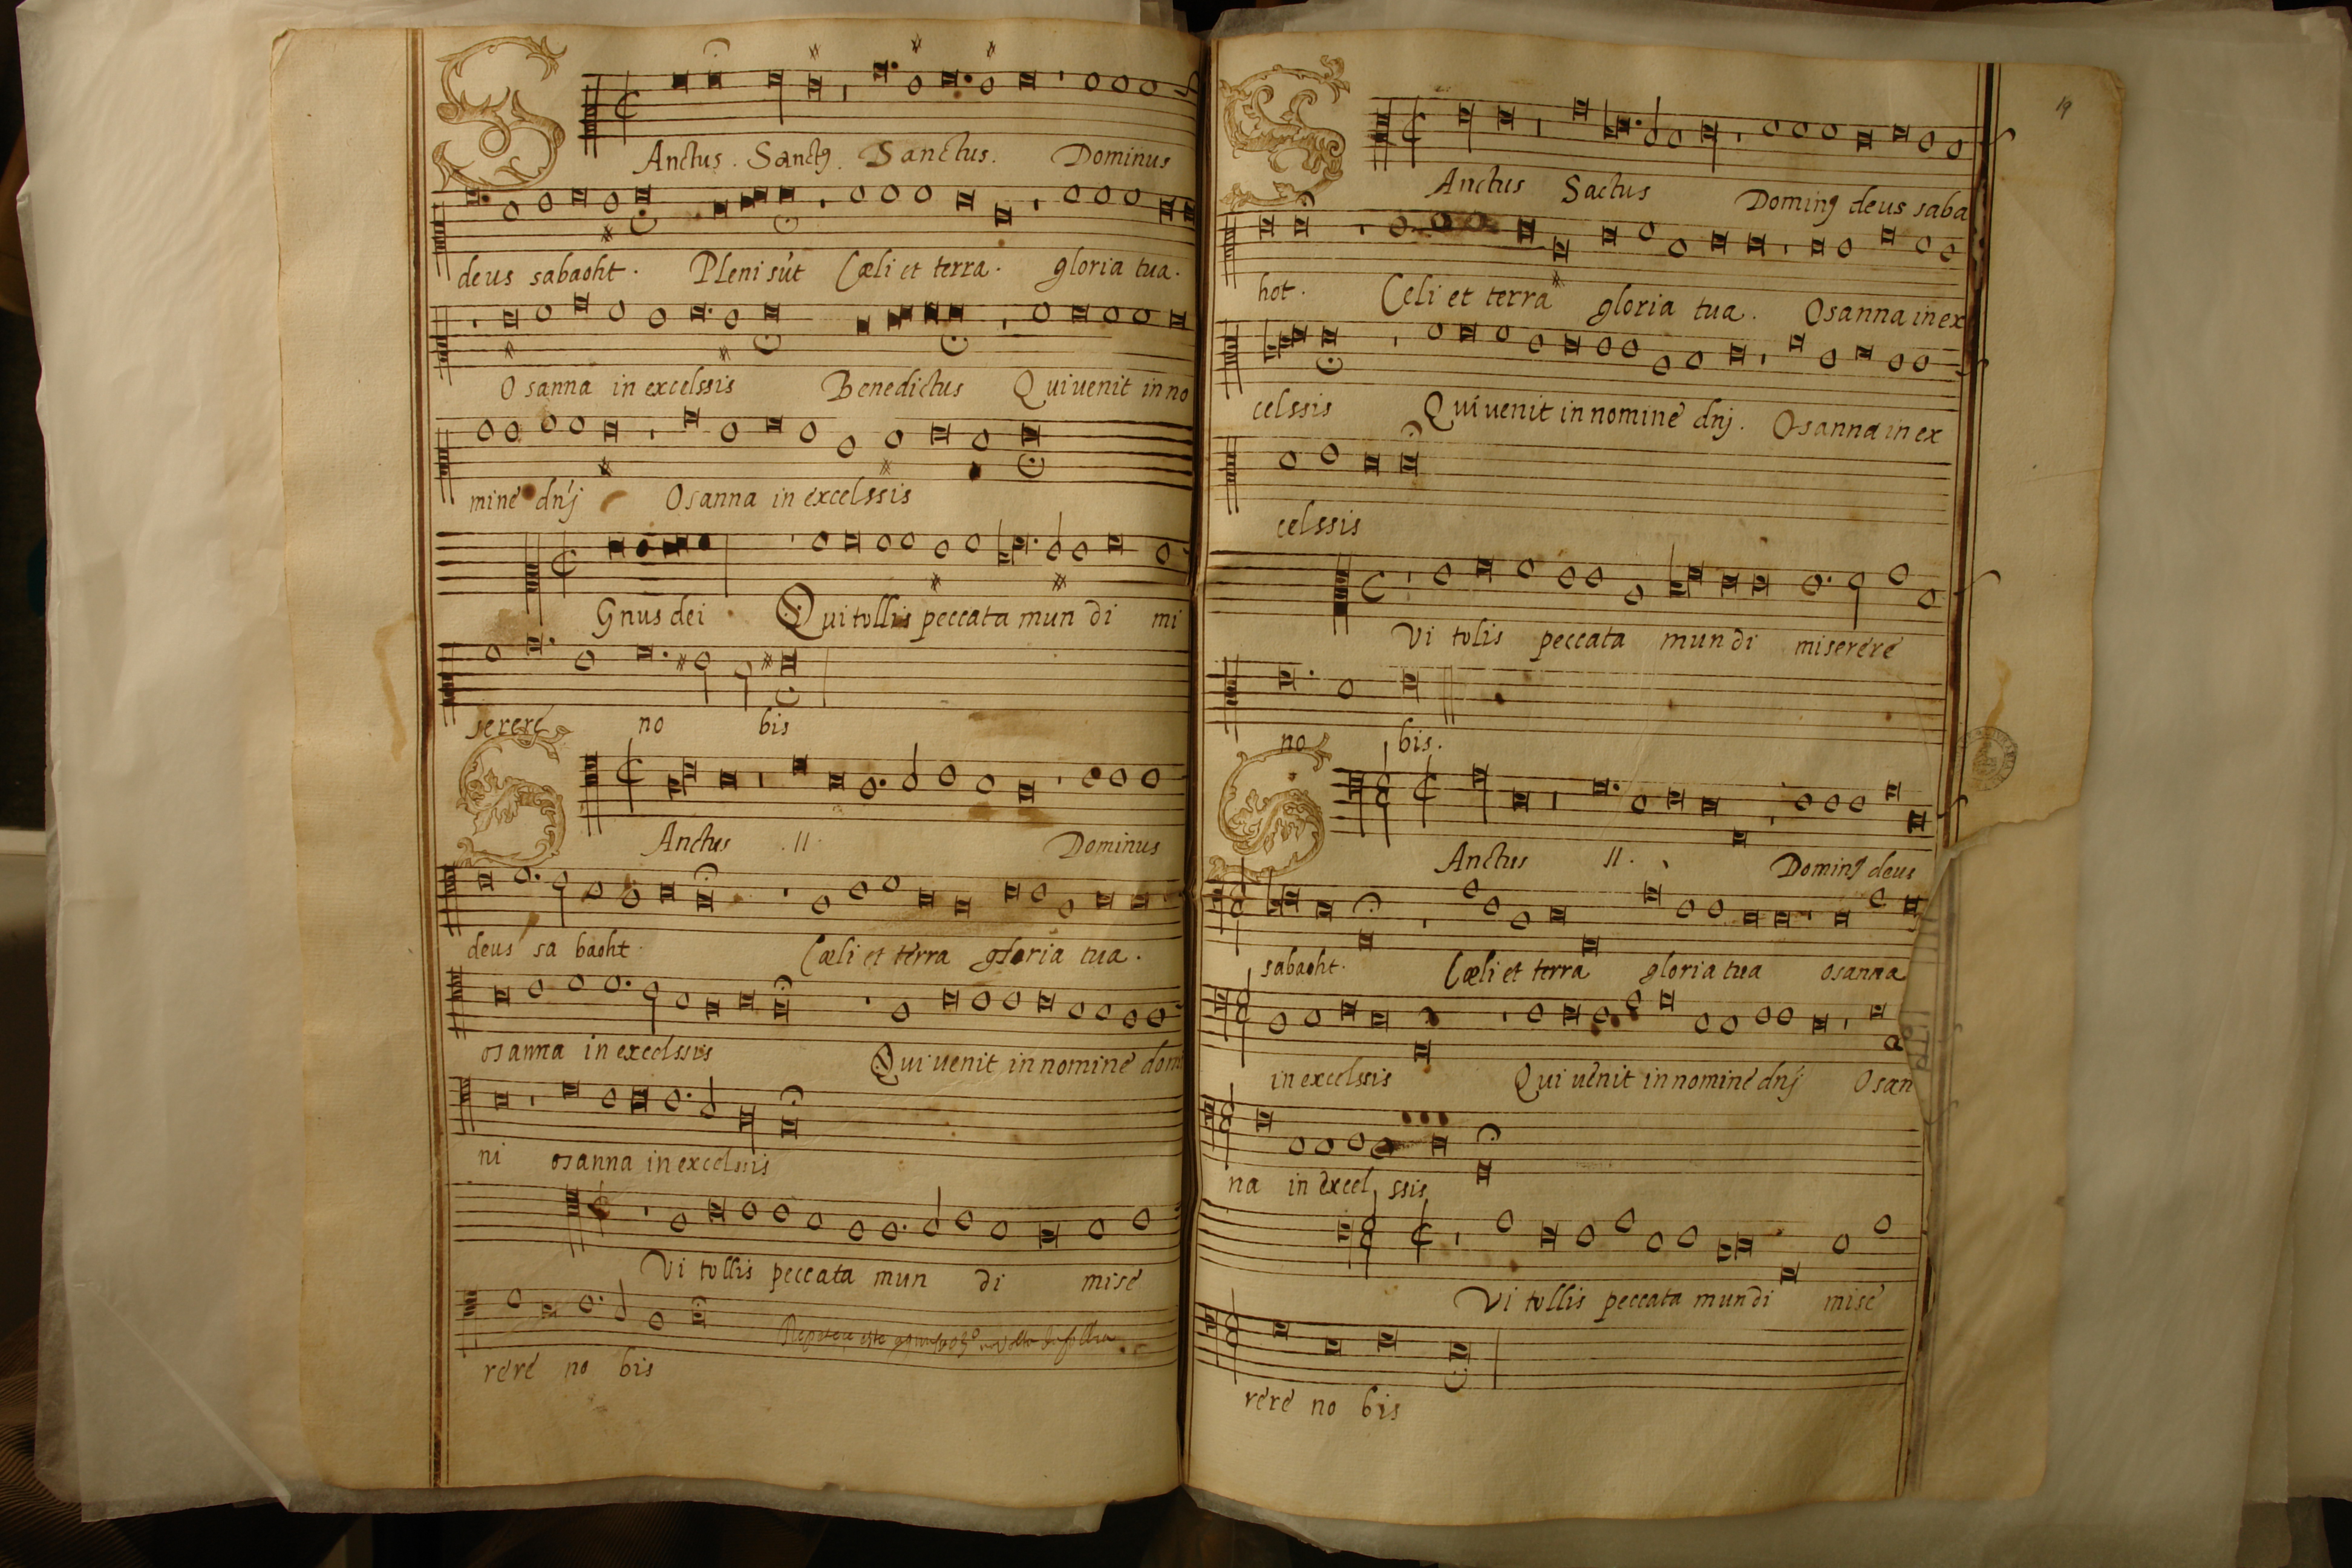 SAnctus. Sanctꝰ. Sanctus. Dominus
deus sabaoht. Pleni sũt Cæli et terra. gloria tua.
Osanna in excelssis Benedictus Qui uenit in no
mine dñj Osanna in excelssis
Gnus dei Qui tollis peccata mundi mi
serere no bis
SAnctus .II. Dominus
deus sa baoht. Cæli et terra gloria tua.
osanna in excelssis Qui uenit in nomine domi
ni osanna in excelssis
Vi tollis peccata mun di mise
rere no bis
19
SAnctus Sactus Dominꝰ deus saba
hot. Celi et terra gloria tua. Osanna in ex
celssis Qui uenit in nomine dnj. Osanna in ex
celssis
Vi tolis peccata mundi miserere
no bis.
SAnctus II. Dominꝰ deus
sabaoht. Cæli et terra gloria tua osanna
in excelssis Qui uenit in nomine dnj Osan
na in excel ssis
Vi tollis peccata mundi mise
rere no bis